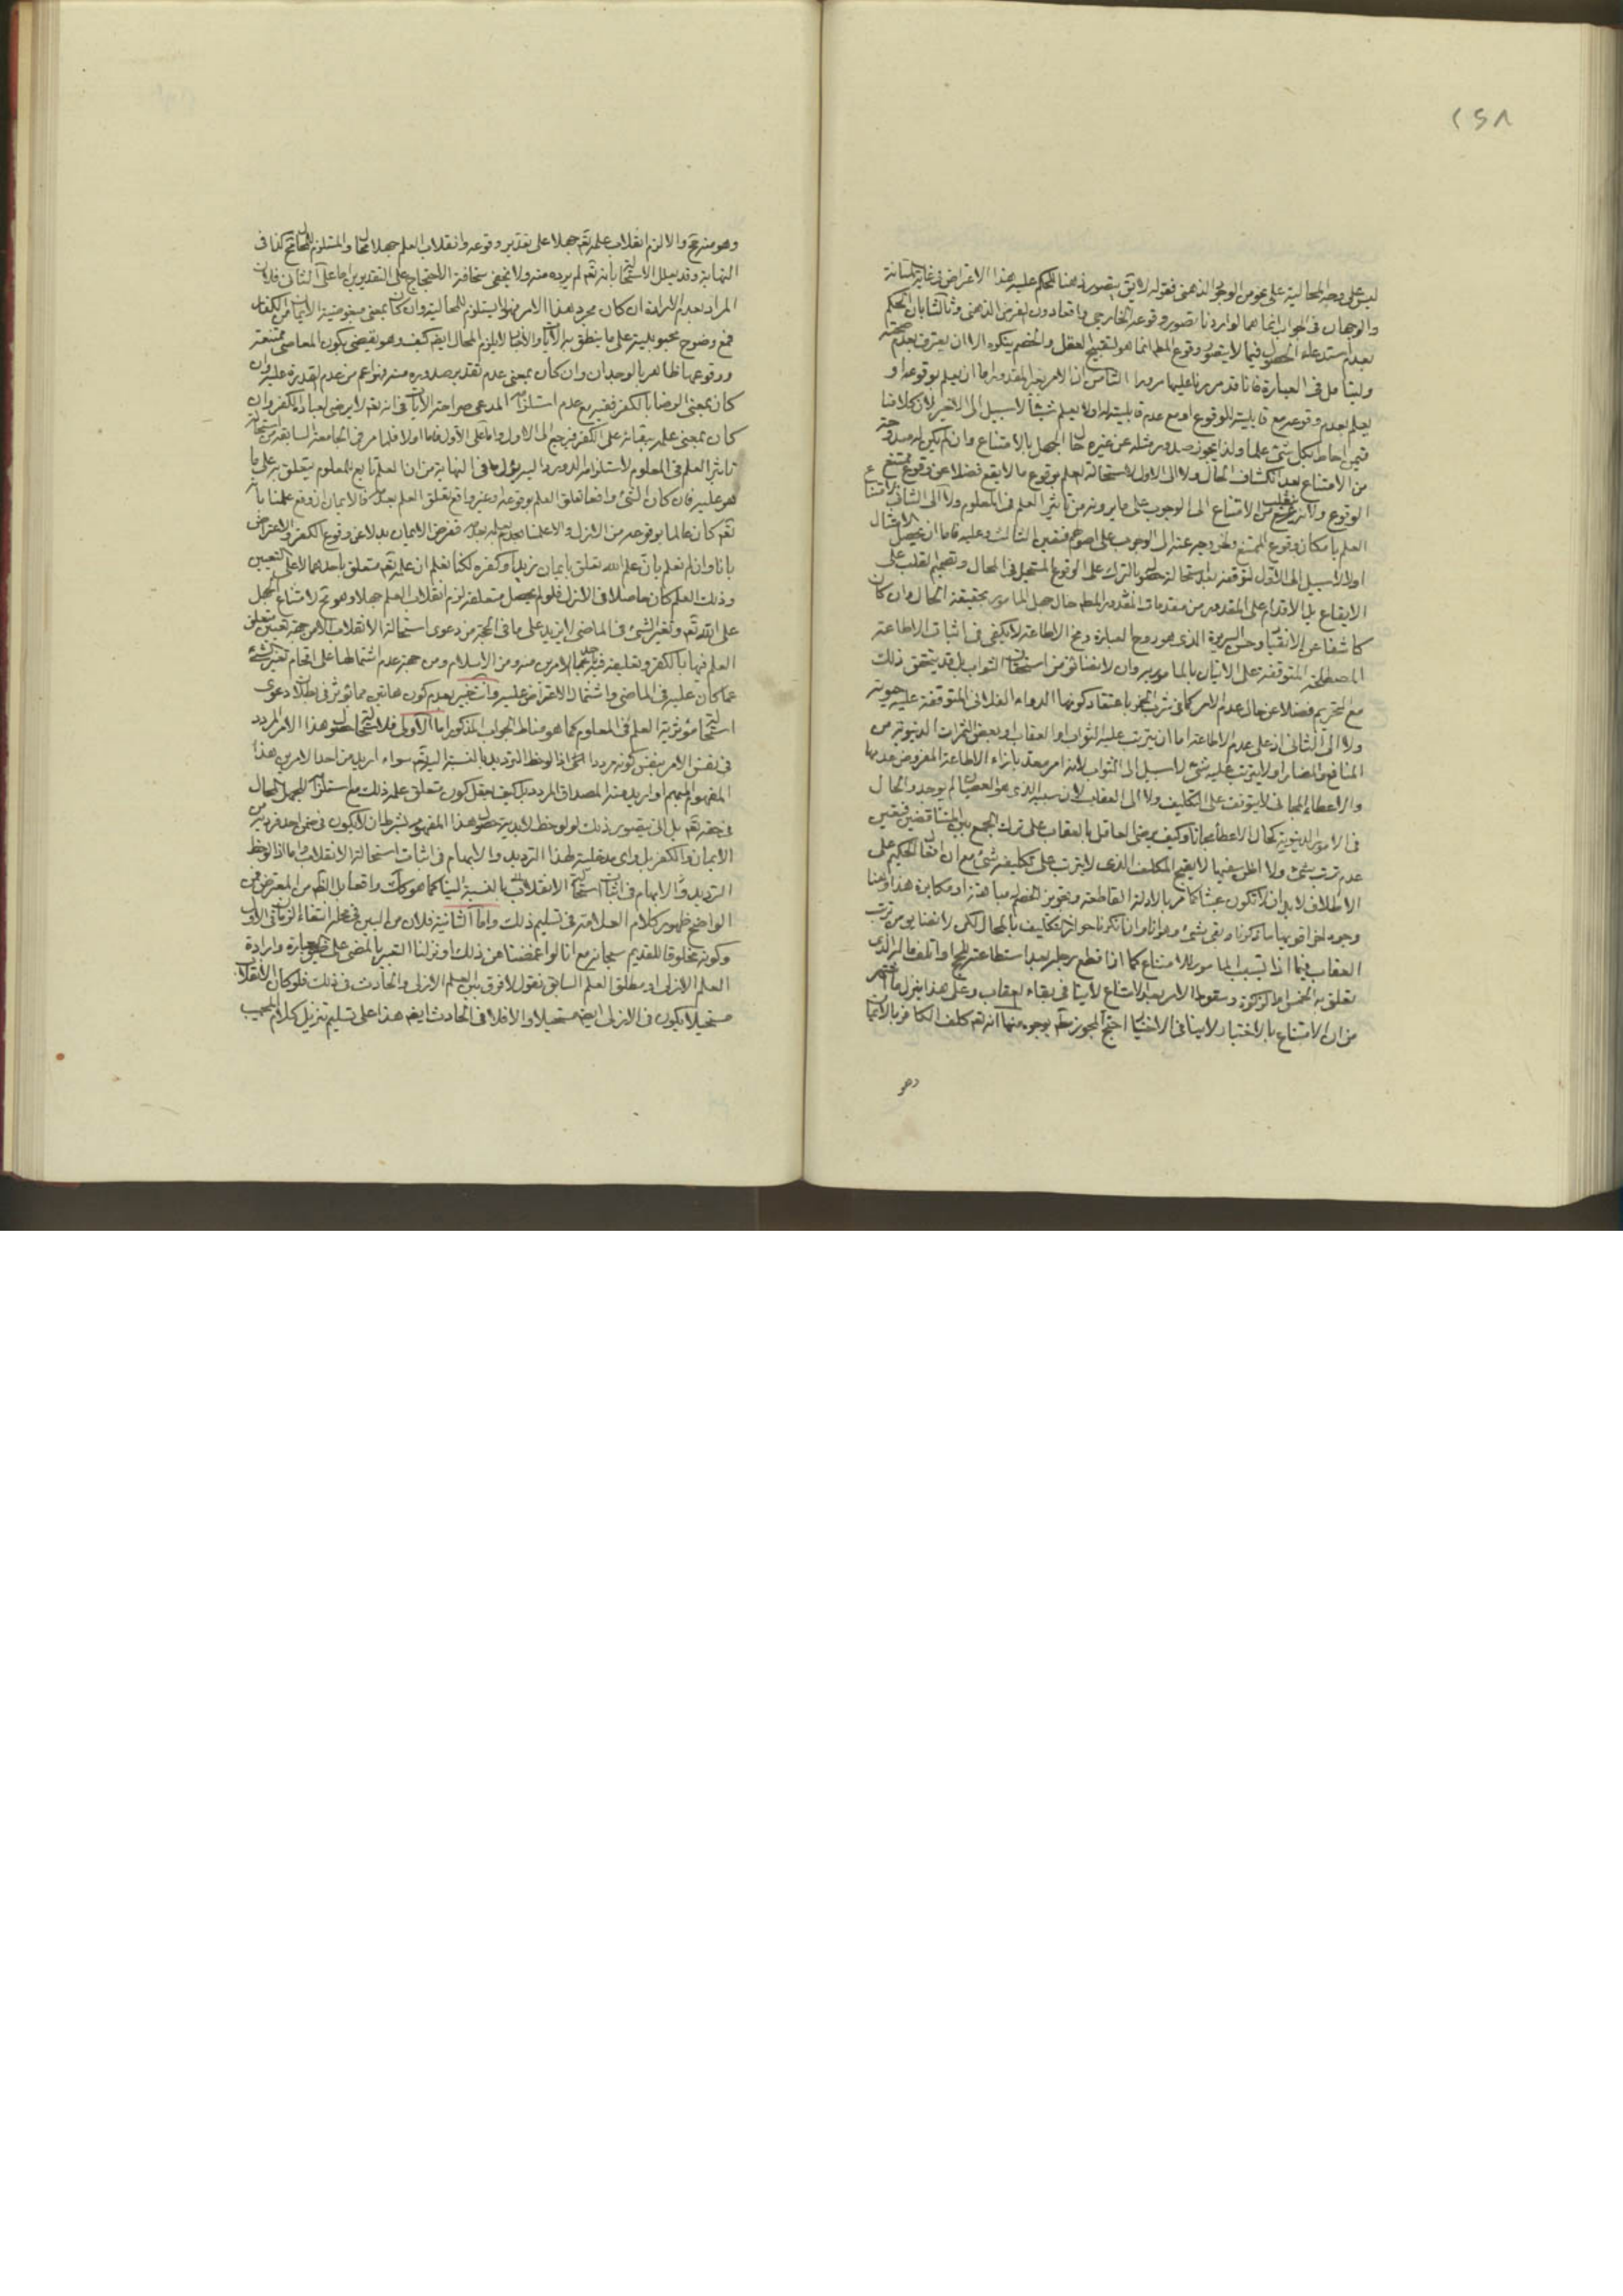 ٢٤٨
ليس على وجه المحالية على نحو من الوجود الذهني فقوله لا يتصور ذهنا للحكم عليه هذا الاعتراض في غاية المتانة
والوجهان في الجواب انما هما لو اردنا تصور وقوعه الخارجي واقعا دون الفرض الذهني وثالثا بان الحكم
بعدم استدعاء الحصول فيما لا يتصور وقوع المط انما هو لتقبيح العقل والخصم ينكره الا ان يعترف بعدم صحته
وليتامل في العبارة فانا قد مررنا عليها مرورا الثامن ان الامر بغير المقدور اما ان يعلم بوقوعه او
يعلم بعدم وقوعه مع قابليته للوقوع او مع عدم قابليته له او لا يعلم شيئا لا سبيل الى الاخير لان كلامنا
فيمن احاط بكل شئ علما ولذا يجوز صدور مثله عن غيره حال الجهل بالامتناع وان لم يكن له مندوحة
من الامتناع بعد انكشاف الحال ولا الى الاول لاستحالة العلم بوقوع ما لا يقع فضلا عن وقوع ممتنع
الوقوع ولا من الامتناع الى الوجوب على ما يرونه من تاثير العلم في المعلوم ولا الى الثاني
العلم بامكان وقوع الممتنع وخروجه عنه الى الوجوب على اصولهم فتعين الثالث وعليه فاما ان يحصل الامتثال
اولا لا سبيل الى الاول لتوقفه بعد استحالة حصوله بالترك على الوقوع المستحيل في المحال وتصميم القلب على
الايقاع بل الاقدام على المقدور من مقدمات المقدور المط حال جهل المامور بحقيقة الحال وان كان
كاشفا عن الانقياد وحسن السريرة الذي هو روح العبادة ومخ الاطاعة لا يكفي في اثبات الاطاعة
المصطلحة المتوقفة على الاتيان بالمامور به وان لا يضايق من استحقاق الثواب بل قد يتحقق ذلك
مع التحريم فضلا عن حال عدم الامر كما في شرب الخمر باعتقاد كونها الدواء الفلاني المتوقفة عليه حيوته
ولا الى الثاني اذ على عدم الاطاعة اما ان يترتب عليه الثواب او العقاب او بعض الثمرات الدنيوية من
المنافع والمضار او لا يترتب عليه شئ لا سبيل الى الثواب لانه امر معد بازاء الاطاعة المفروض عدمها
والاعطاء المجاني لا يتوقف على التكليف ولا الى العقاب لان سببه الذي هو العصيان لم يوجد والحال
في الامور الدنيوية كحال الاعطاء مجانا وكيف يرضى العاقل بالعقاب على ترك الجمع بين المتناقضين فتعين
عدم ترتب شئ ولا اظن سفيها لا يقبح المكلف الذي لا يترتب على تكليفه شئ مع ان افعال الحكيم على
الاطلاق لا بد ان لا تكون عبثا كما مر بالادلة القاطعة وتجويز الخصم مباهتة او مكابرة هذا وهنا
وجوه اخر اقويها ما ذكرنا وبقى شئ وهو انا وان انكرنا جواز التكليف بالمحال لكن لا نضايق من ترتب
العقاب فيما اذا تسبب المامور للامتناع كما اذا قطع رجله بعد استطاعته للحج او اتلف ماله الذي
تعلق به الخمس او الزكوة وسقوط الامر بعد الامتناع لا ينافي بقاء العقاب وعلى هذا ينزل ما اشتهر
من ان الامتناع بالاختيار لا ينافي الاختيار احتج المجوز مط بوجوه منها انه تع كلف الكافر بالايمان
وهو
وهو منه مح والا لزم انقلاب علمه تع جهلا على تقدير وقوعه وانقلاب العلم جهلا محال والمستلزم للمحال مح كذا في
النهاية وقد يعلل الاستحالة بانه تع لم يرده منه ولا يخفى سخافة الاحتجاج على التقديرين اما على الثاني فلان
المراد بعدم الارادة ان كان مجرد هذا الامر فهو لا يستلزم المحالية وان كان بمعنى مبغوضية الايمان من الكفار
فمع وضوح محبوبيته على ما ينطق به الايات والاخبار لا يلزم المحال ايضا كيف وهو يقضي بكون المعاصي ممتنعة
ووقوعها ظاهر بالوجدان وان كان بمعنى عدم تقدير صدوره منه فهو اعم من عدم القدرة عليه وان
كان بمعنى الرضا بالكفر ففيه مع عدم استلزامه المدعى صراحة الايات في انه تع لا يرضى لعباده الكفر وان
كان بمعنى علمه ببقائه على الكفر فيرجع الى الاول واما على الاول فاما اولا فلما مر في الجامعة السابقة من استحالة
تاثير العلم في المعلوم لاستلزامه الدور واليه يؤل ما في النهاية من ان العلم تابع للمعلوم يتعلق به على ما
هو عليه فان كان الشئ واقعا تعلق العلم بوقوعه او غير واقع تعلق العلم بعدمه فالايمان ان وقع علمنا بانه
تع كان عالما بوقوعه من الازل والا علمنا علمه بعدمه ففرض الايمان بدلا عن وقوع الكفر والاعتراض
بانا وان لم نعلم بان علم الله تعلق بايمان زيد او كفره لكنا نعلم ان علمه تع متعلق باحدهما لا على التعيين
وذلك العلم كان حاصلا في الازل فلو لم يحصل متعلقه لزم انقلاب العلم جهلا وهو مح لامتناع الجهل
على الله تع وتغير الشئ في الماضي لا يزيد على ما في الحجة من دعوى استحالة الانقلاب الا من جهة تعيين متعلق
العلم فيها بالكفر وتعليقه فيه باحد الامرين منه ومن الاسلام ومن جهة عدم اشتمالها على اقحام تغير الشئ
عما كان عليه في الماضي واشتمال الاعتراض عليه وانت خبير بعدم كون هاتين مما يؤثر في ابطال دعوى
استحالة مؤثرية العلم في المعلوم كما هو مناط الجواب المذكور اما الاولى فلاستحالة حصول هذا الامر المردد
في نفس الامر بنفس كونه مرددا اذا لوحظ الترديد بالنسبة اليه تع سواء اريد من احد الامرين هذا
المفهوم المبهم او اريد منه المصداق المردد بل كيف يعقل كون متعلق علمه ذلك مع استلزامه للجهل المحال
في حقه تع بل انى يتصور ذلك لو لوحظ لابدية حصول هذا المفهوم بشرط ان لا يكون في ضمن احد فرديه من
الايمان والكفر بل واى مدخلية لهذا الترديد والابهام في اثبات استحالة الانقلاب واما اذا لوحظ
الترديد والابهام في اثبات استحالة الانقلاب بالنسبة الينا كما هو كك واقعا بل الظ من المعترض فمن
الواضح ظهور كلام العلامة في تسليم ذلك واما الثانية فلان من البين في محله انتفاء الزمان في الازل
وكونه مخلوقا للقديم سبحانه مع انا لو اغمضنا عن ذلك او نزلنا التعبير بالمضي على ضيق العبارة وارادة
العلم الازلي او مطلق العلم السابق نقول لا فرق بين العلم الازلي والحادث في ذلك فلو كان الانقلاب
مستحيلا يكون في الازلي ايضا مستحيلا والا فلا في الحادث ايضا هذا على تسليم تنزيل كلام المجيب